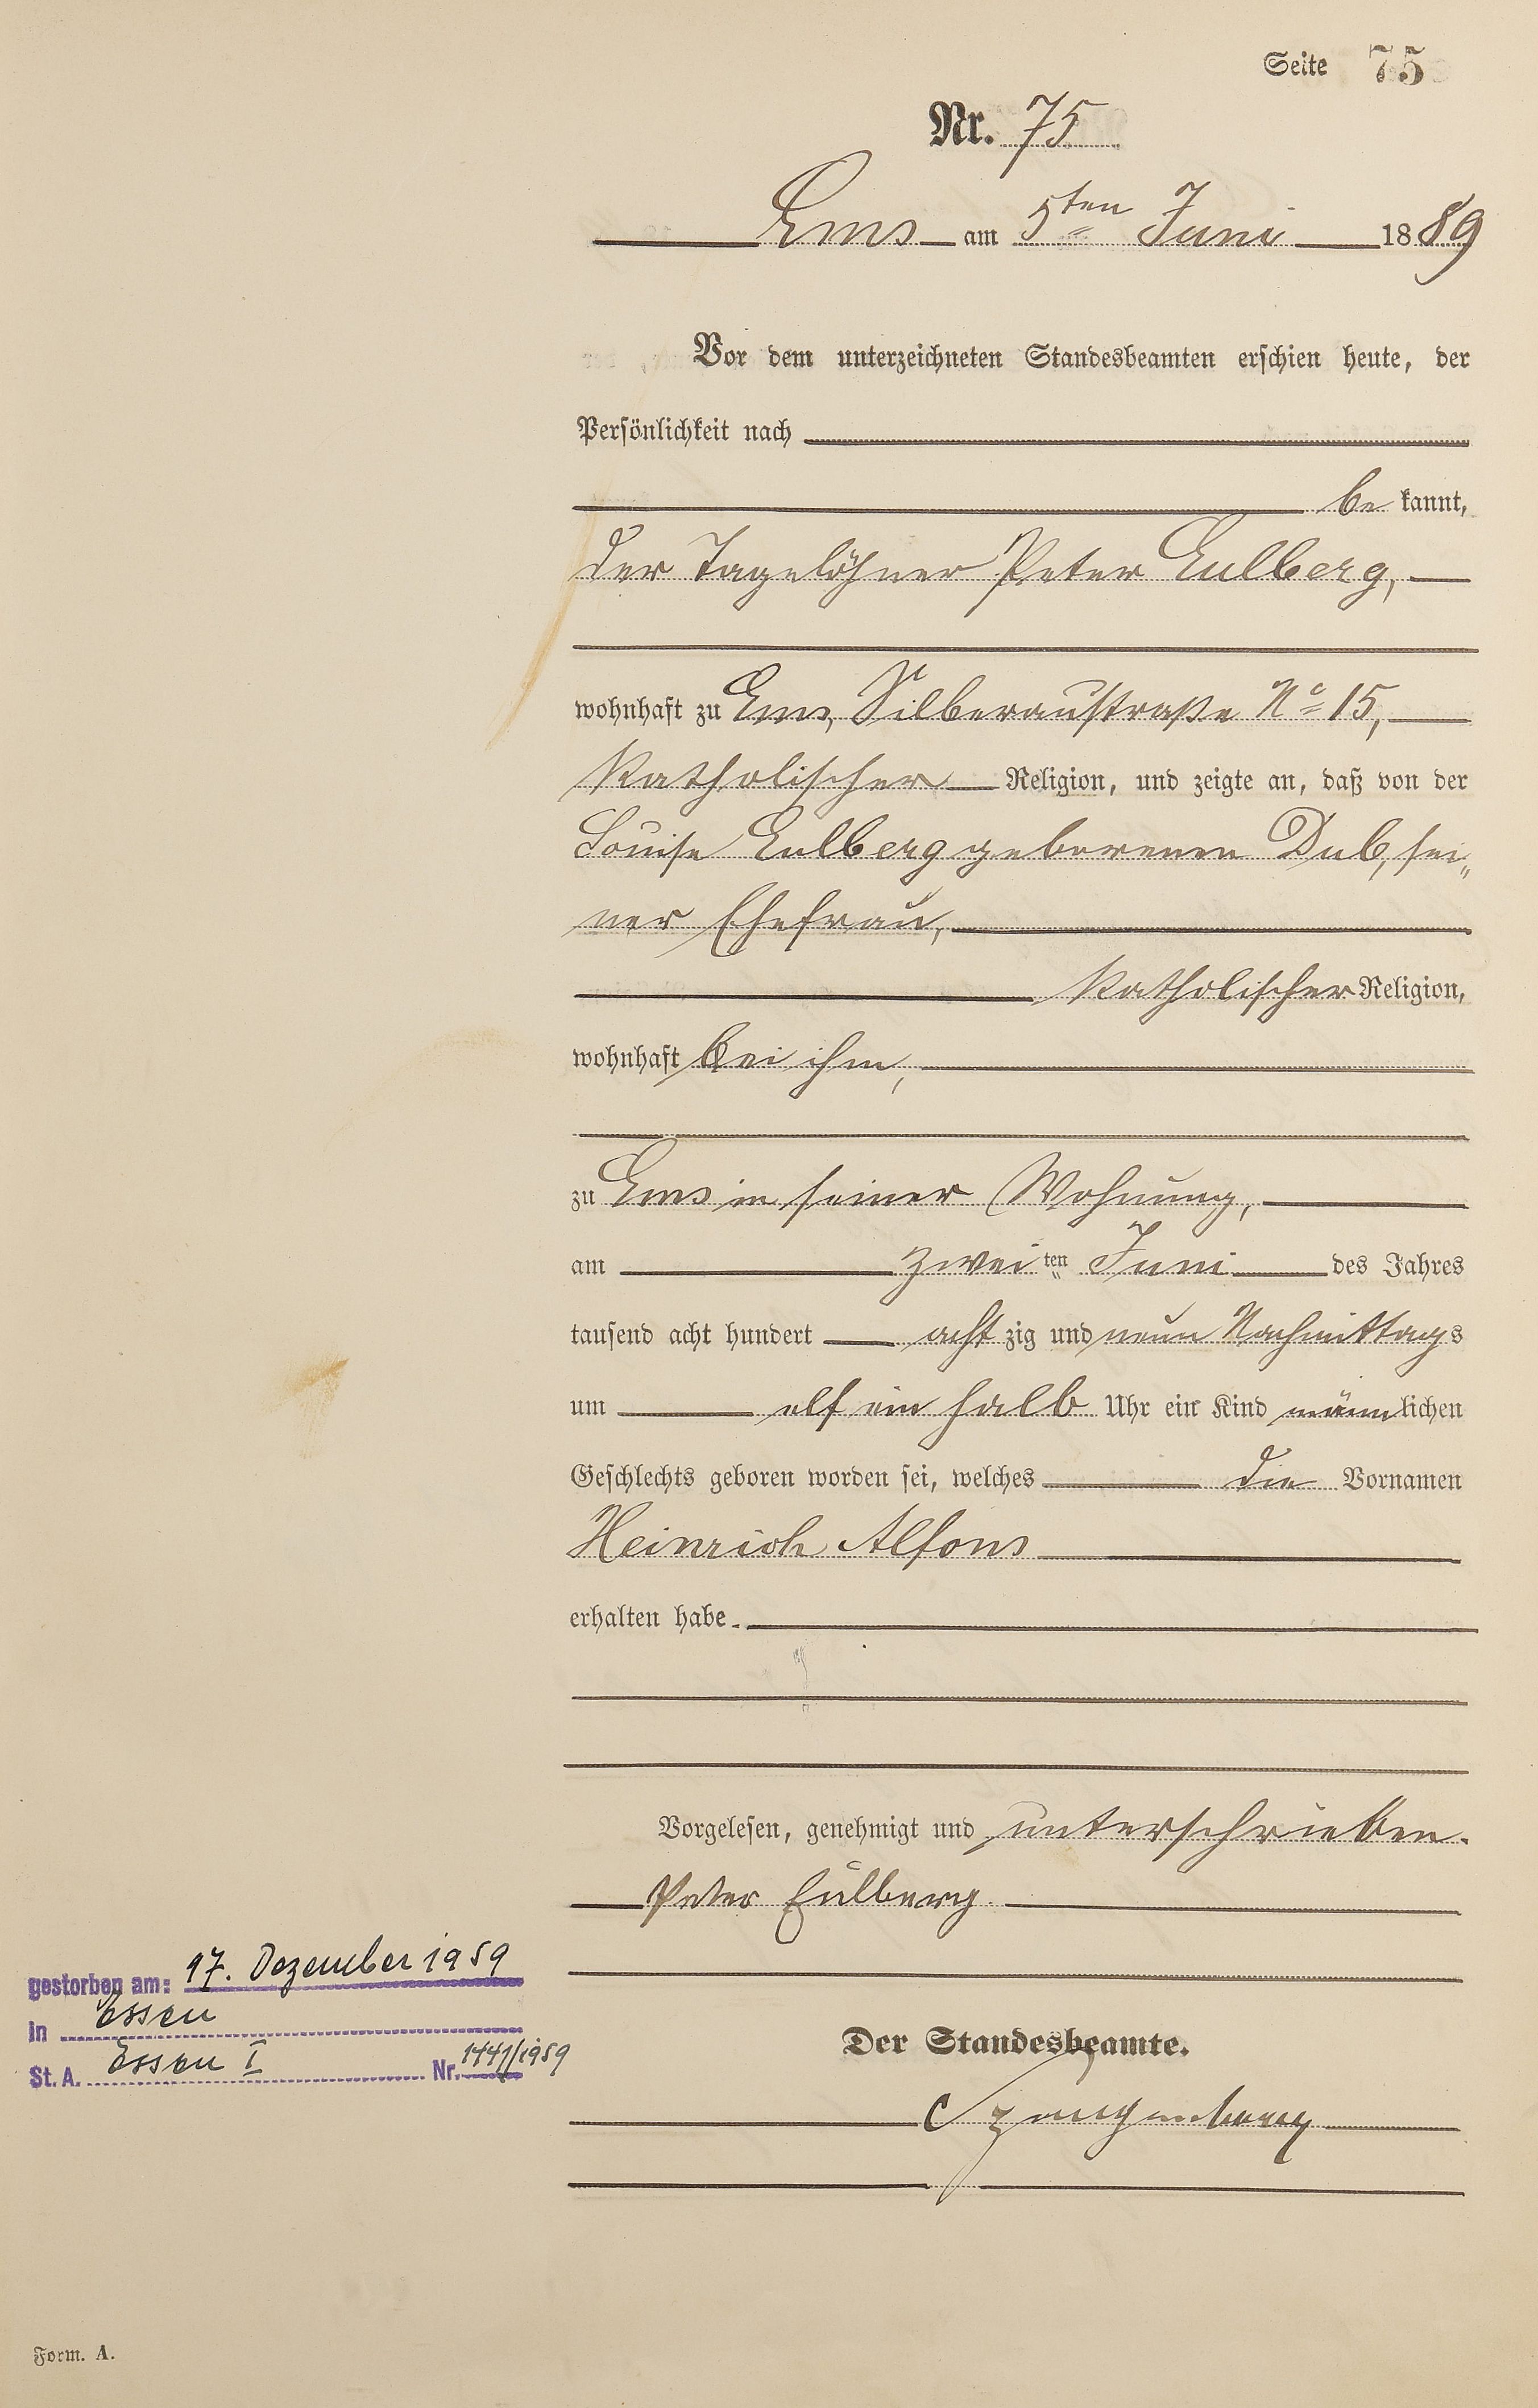 Seite 75
Nr. 75
Ems am 5ten Juni 1889
Vor dem unterzeichneten Standesbeamten erschien heute, der
Persönlichkeit nach
be kannt,
der Tagelöhner Peter Eulberg,
wohnhaft zu Ems, Silberaustraße No 15,
katholischer Religion, und zeigte an, daß von der
Louise Eulberg geborenen Dub, sei„
ner Ehefrau,
katholischer Religion,
wohnhaft bei ihm,
zu Ems in seiner Wohnung,
am zweiten Juni des Jahres
tausend acht hundert acht zig und neun Nachmittags
um elf ein halb Uhr ein Kind männlichen
Geschlechts geboren worden sei, welches die Vornamen
Heinrich Alfons
erhalten habe.
Vorgelesen, genehmigt und unterschrieben.
Peter Eülberg.
gestorben am: 17. Dezember 1959
in Essen
St. A. Essen I Nr. 1441/1959
Der Standesbeamte.
Form. A.